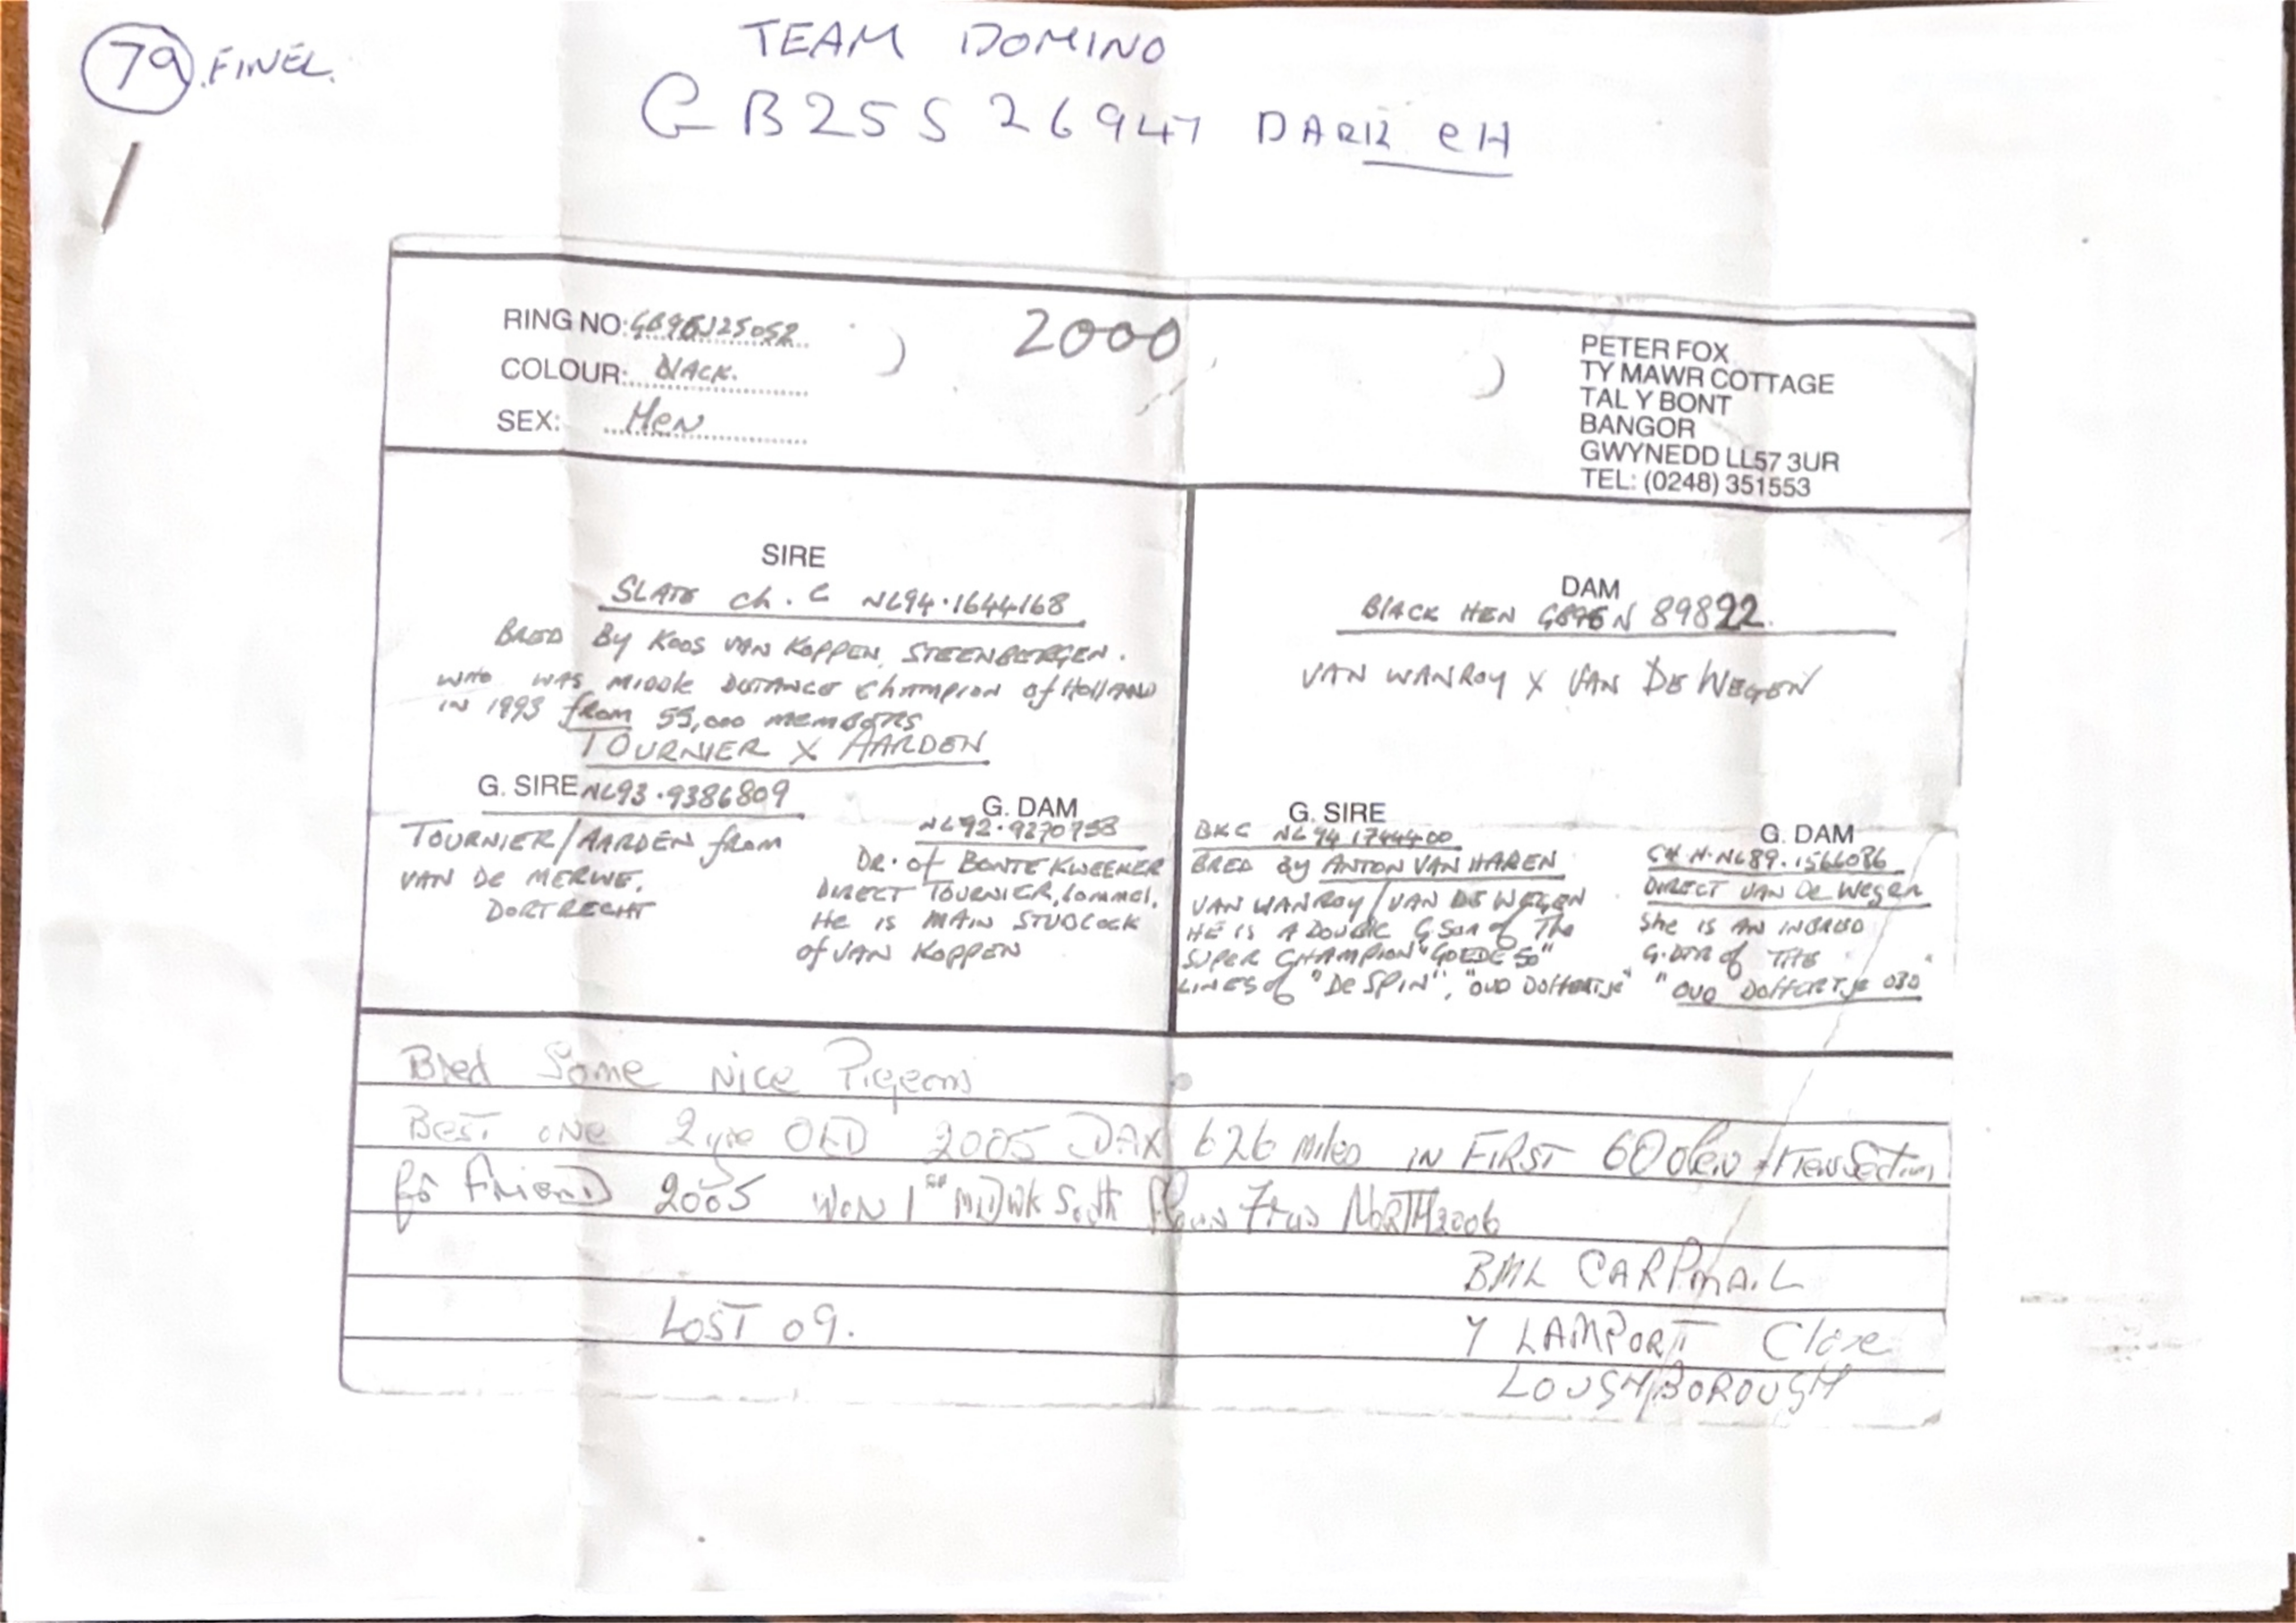 79 FINEL.
TEAM DOMINO
GB25S26947 DARK CH
RING NO: GB96J25052
COLOUR: BLACK.
SEX: HEN
2000
PETER FOX
TY MAWR COTTAGE
TAL Y BONT
BANGOR
GWYNEDD LL57 3UR
TEL: (0248) 351553
SIRE
SLATE Ch. C NL94·1644168
BRED By KOOS VAN KOPPEN, STEENBERGEN.
WHO WAS MIDDLE DISTANCE Champion of HOLLAND
IN 1993 from 55,000 MEMBERS
TOURNIER X AARDEN
G. SIRE NL93·9386809
TOURNIER/AARDEN from
VAN DE MERWE,
DORTRECHT
G. DAM
NL92·9270758
DR. of BONTE KWEEKER
DIRECT TOURNIER, Lommel.
He is MAIN STUDCOCK
of VAN KOPPEN
DAM
BLACK HEN GB96N 89822.
VAN WANROY X VAN DE WEGEN
G. SIRE
BKC NL94 1744400
BRED By ANTON VAN HAREN
VAN WANROY/VAN DE WEGEN
HE IS A DOUBLE G.Son of The
SUPER CHAMPION "GOEDE 50"
LINES of "De SPIN", "OUD DOFFERTJE"
G. DAM
CH H. NL89.1566086
DIRECT VAN De Wegen
She is AN INBRED
G.DTR of THE
"OUD DOFFERTJE 030"
Bred Some Nice Pigeons
BEST ONE 2 yrs OLD 2005 DAX 626 miles IN FIRST 60 Open
for friend 2005 WON 1st MIDWK South NORTH 2006
BILL CARPMAIL
Y LAMPORT Close
LOUGHBOROUGH
LOST 09.